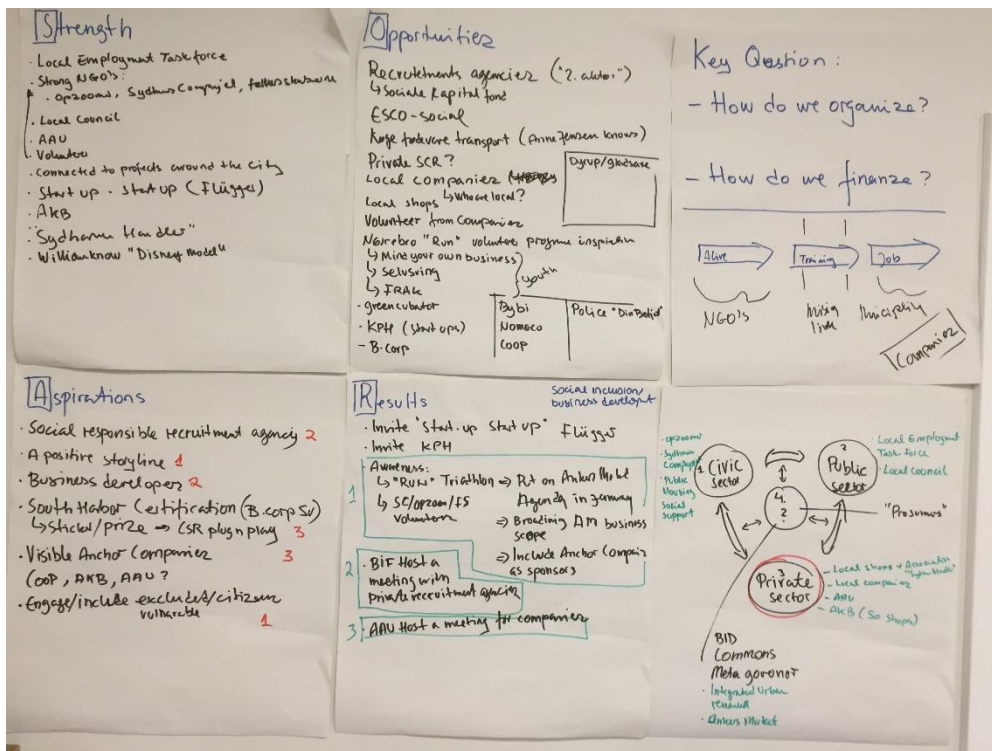 Strength
· Local Employment Taskforce
· Strong NGO's:
· Opzoomr, Sydhavns Compagniet,
· Local Council
· AAU
· Volunteer
· Connected to projects around the city
· Start up - Start up (Flügger)
· AKB
· "Sydhavnen Handler"
· William know "Disney model"
Opportunities
Recruitments agencies ("2. aktør")
↳ Sociale Kapital fond
ESCO-social
Køge fødevare transport (Anne Jensen knows)
Private SCR?
Local companies
Local shops ↳ Who are local?
Dyrup/gladsaxe
Volunteer from Companies
Nørrebro "Run" volunteer programe inspiration
↳ Mind your own business
↳ Selvsving
↳ FRAK
youth
· greencubator
- KPH (Start ups)
- B-corp
Bybi
Nomeco
COOP
Police "Din Betjent"
Key Qestion:
- How do we organize?
- How do we finanze?
Alive
Training
Job
NGO's
Missing link
Municipality
Companies
Aspirations
· Social responsible recruitment agency 2
· A positive storyline 1
· Business developer 2
· South Harbor Certification (B.corp SV)
↳ sticker/prize → CSR plug n play 3
· Visible Anchor Companies 3
COOP, AKB, AAU?
· Engage/include excluded/citizens
vulnerable 1
Results
social inclusion/
business developt
· Invite "Start-up Start up" Flügger
· Invite KPH
1
Awareness:
↳ "Run" Triathlon ⇒ Put on Ankers Market
Agenda in January
↳ SC/opzoom/FS
Volunteers
⇒ Broading AM business
scope
⇒ Include Anchor Companies
as sponsors
2
· BIF Host a
meeting with
private recruitment agencies
3
AAU Host a meeting for companies
· opzoomr
· Sydhavns
Compagniet
· Public
Housing
Social
support
1 Civic
sector
2
Public
sector
· Local Employment
Task force
· Local council
4.
?
"Prosumers"
3
Private
sector
- Local shops + Association
"Sydhavnen Handler"
- Local companies
- AAU
- AKB (50 shops)
BID
Commons
Meta govornor
· Integrated Urban
renewal
· Ankers Market